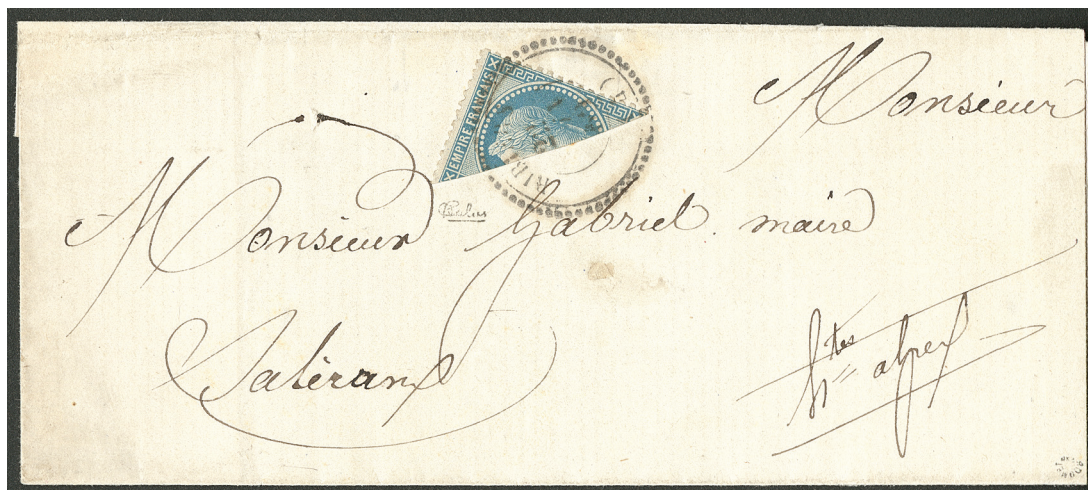 EMPIRE FRANÇAIS
Monsieur
Monsieur Gabriel maire
Saléran
Htes alpes
Calves